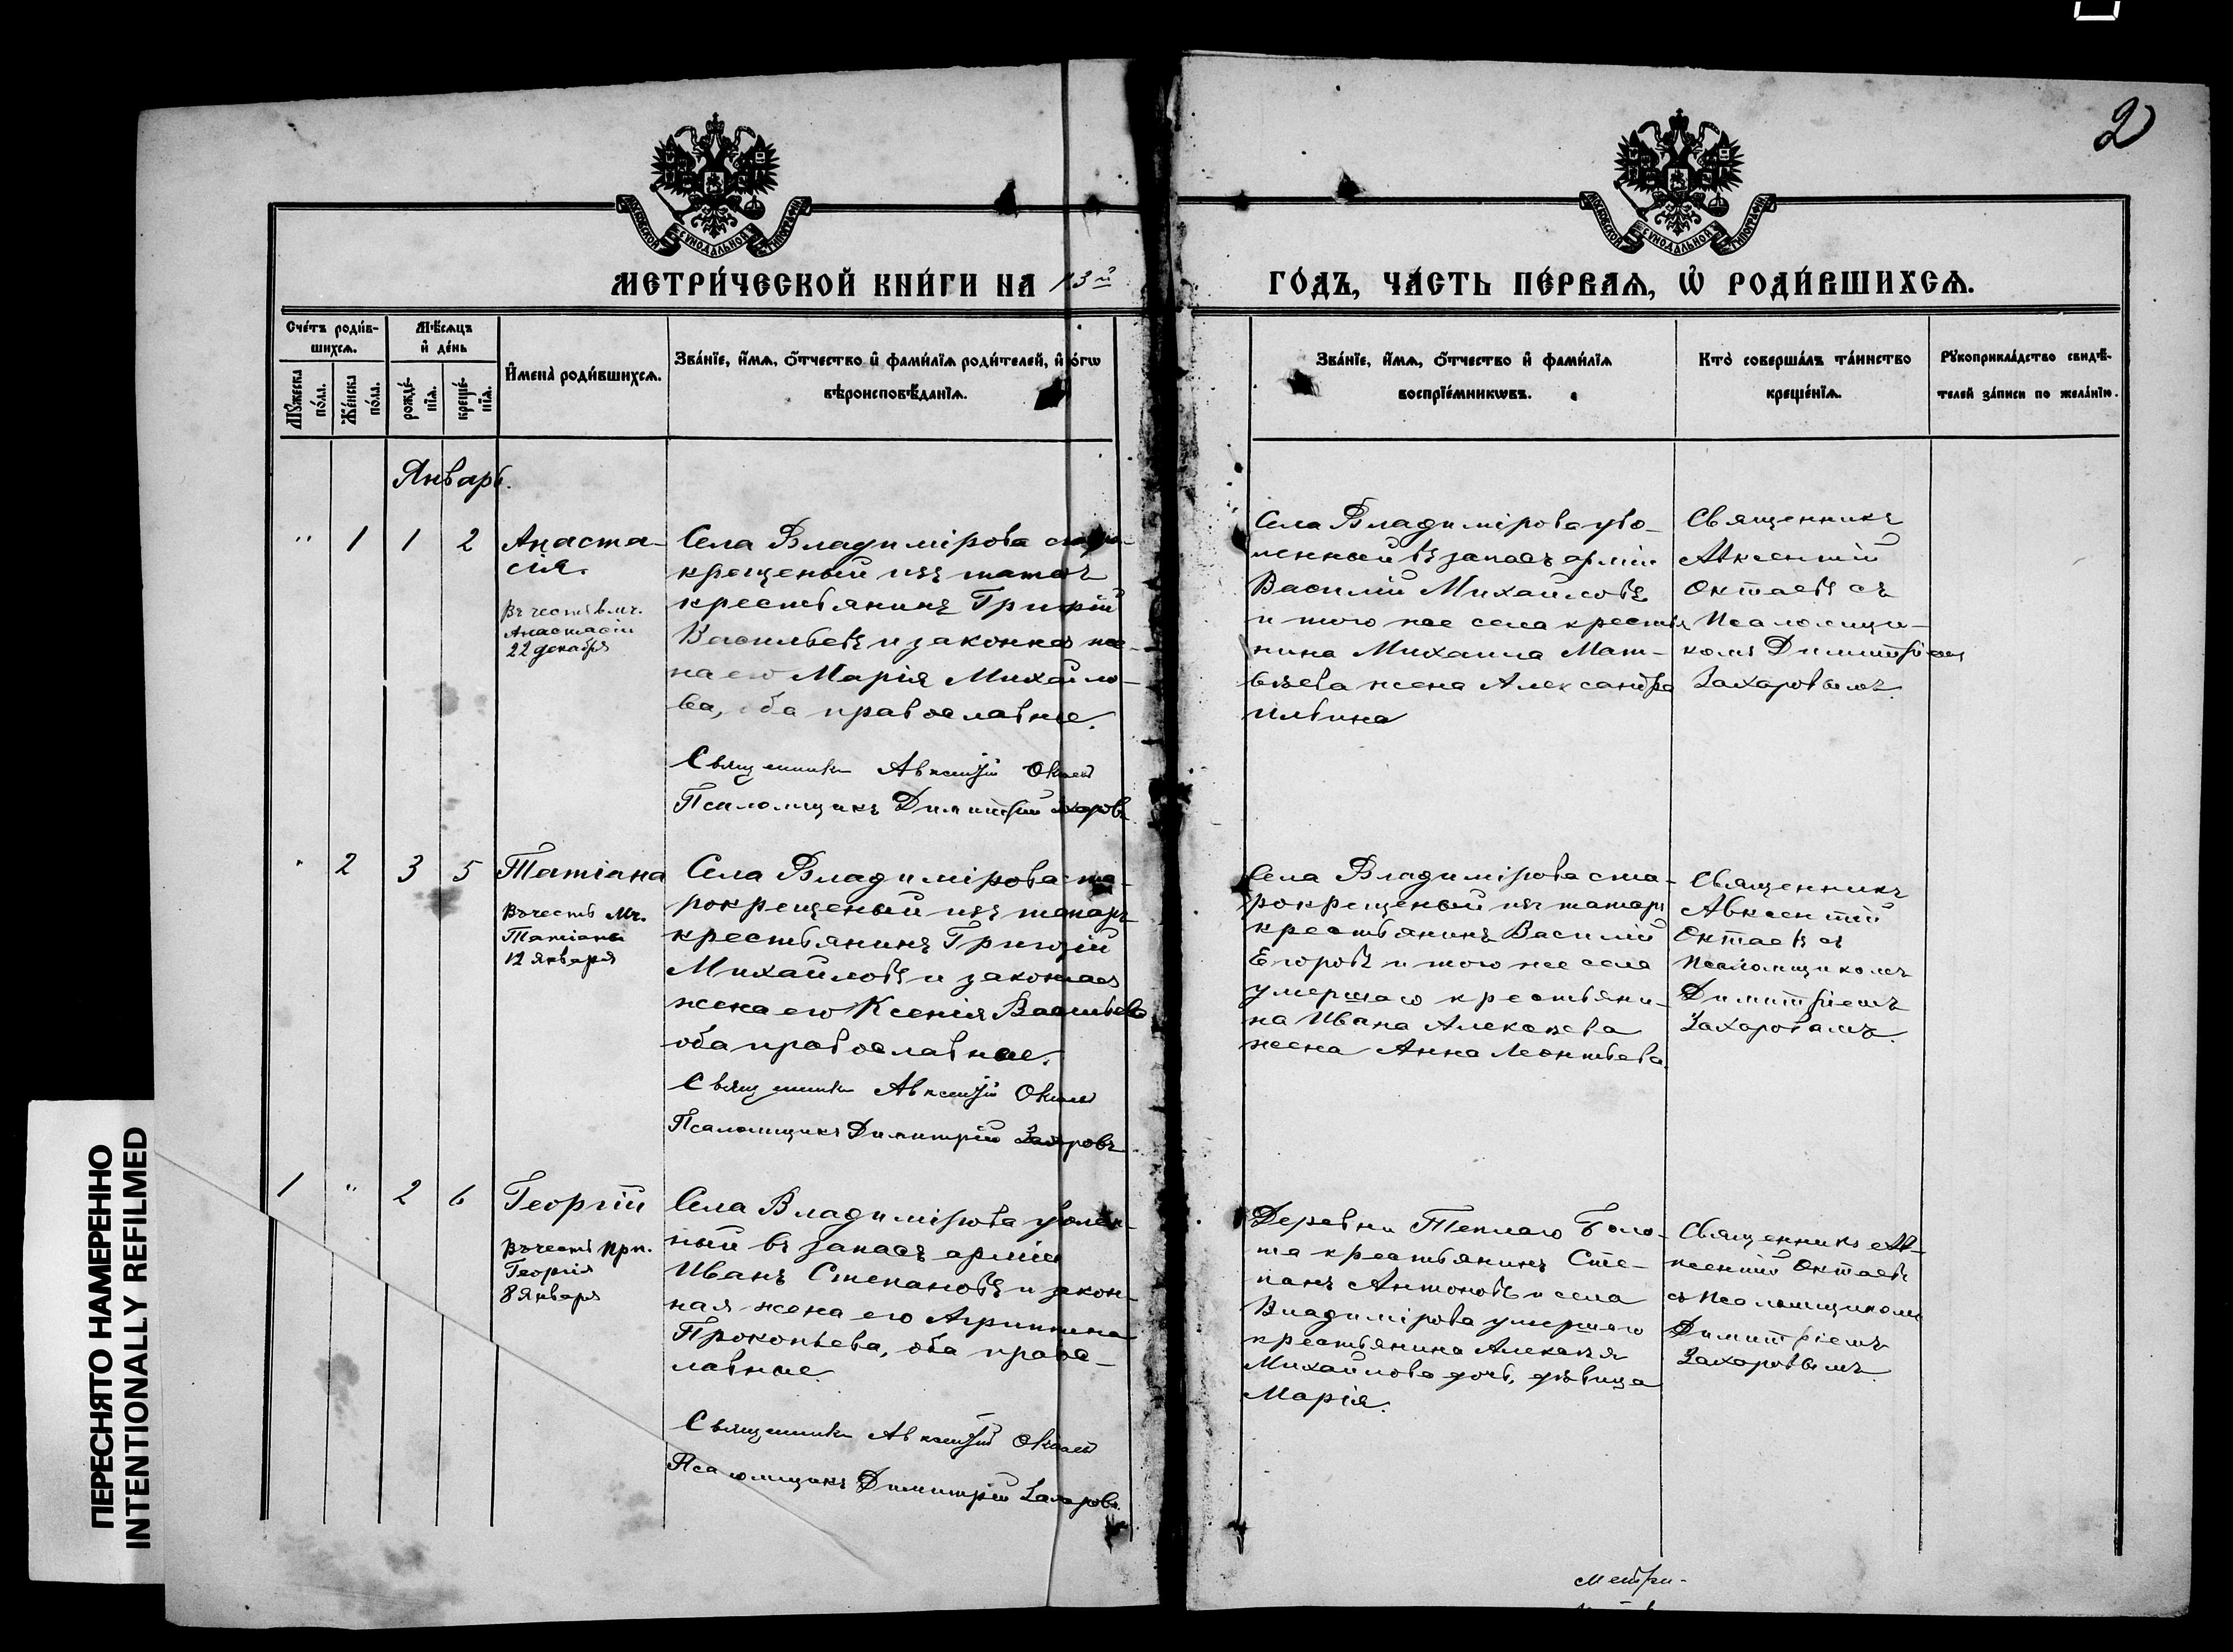 2
МОСКОВСКОЙ СѴНОДАЛЬНОЙ ТИПОГРАФІИ
МОСКОВСКОЙ СѴНОДАЛЬНОЙ ТИПОГРАФІИ
МЕТРИ́ЧЕСКОЙ КНИ́ГИ НА 13й
ГО́ДЪ, ЧА́СТЬ ПЕ́РВАѦ, Ѡ҆ РОДИ́ВШИХСѦ.
Сче́тъ роди́в-
шихсѧ.
Мѣ́сѧцъ
и҆ де́нь
Мꙋ́жеска
по́ла.
Же́нска
по́ла.
рожде́-
нїѧ.
креще́-
нїѧ.
И҆мена̀ роди́вшихсѧ.
Зва́нїе, и҆́мѧ, ѻ҆́тчество и҆ фами́лїѧ роди́телей, и҆
вѣроисповѣ́данїѧ.
Зва́нїе, и҆́мѧ, ѻ҆́тчество и҆ фами́лїѧ
воспрїе́мникѡвъ.
Кто̀ соверша́лъ та́инство
креще́нїѧ.
Рꙋкоприкла́дство свидѣ́-
телей за́писи по жела́нїю.
Январь.
" 1 1 2
Анаста-
сія.
Въ честь вмч.
Анастасіи
22 декабря
Села Владимірова старо-
крещеный изъ татаръ
крестьянинъ Григорій
Васильевъ и законная же-
на его Марія Михайло-
ва, оба православные.
Священникъ Авксентій Октаевъ
Псаломщикъ Димитрій Захаровъ
Села Владимірова уво-
ленный въ запасъ арміи
Василій Михайловъ
и того же села крестья
нина Михаила Мат-
вѣева жена Александра
Ильина
Священникъ
Авксентій
Октаевъ съ
Псаломщи-
комъ Димитріемъ
Захаровымъ.
" 2 3 5
Татіана
Въ честь Мч.
Татіаны
12 января
Села Владимірова ста-
рокрещеный изъ татаръ
крестьянинъ Григорій
Михайловъ и законная
жена его Ксенія Васильева
оба православные.
Священникъ Авксентій Октаевъ
Псаломщикъ Димитрій Захаровъ
Села Владимірова ста-
рокрещеный изъ татаръ
крестьянинъ Василій
Егоровъ и того же села
умершаго крестьяни-
на Ивана Алексѣева
жена Анна Леонтьева.
Священникъ
Авксентій
Октаевъ съ
Псаломщикомъ
Димитріемъ
Захаровымъ.
1 " 2 6
Георгій
Въ честь Прп.
Георгія
8 января
Села Владимірова уволен-
ный въ запасъ арміи
Иванъ Степановъ и закон-
ная жена его Агриппина
Прокопьева, оба право-
лавные.
Священникъ Авксентій Октаевъ
Псаломщикъ Димитрій Захаровъ.
Деревни Теплаго Боло-
та крестьянинъ Сте-
панъ Антоновъ и села
Владимірова умершаго
крестьянина Алексѣя
Михайлова дочь, дѣвица
Марія.
Священникъ Ав-
ксентій Октаевъ
съ Псаломщикомъ
Димитріемъ
Захаровымъ
Метри-
ПЕРЕСНЯТО НАМЕРЕННО
INTENTIONALLY REFILMED